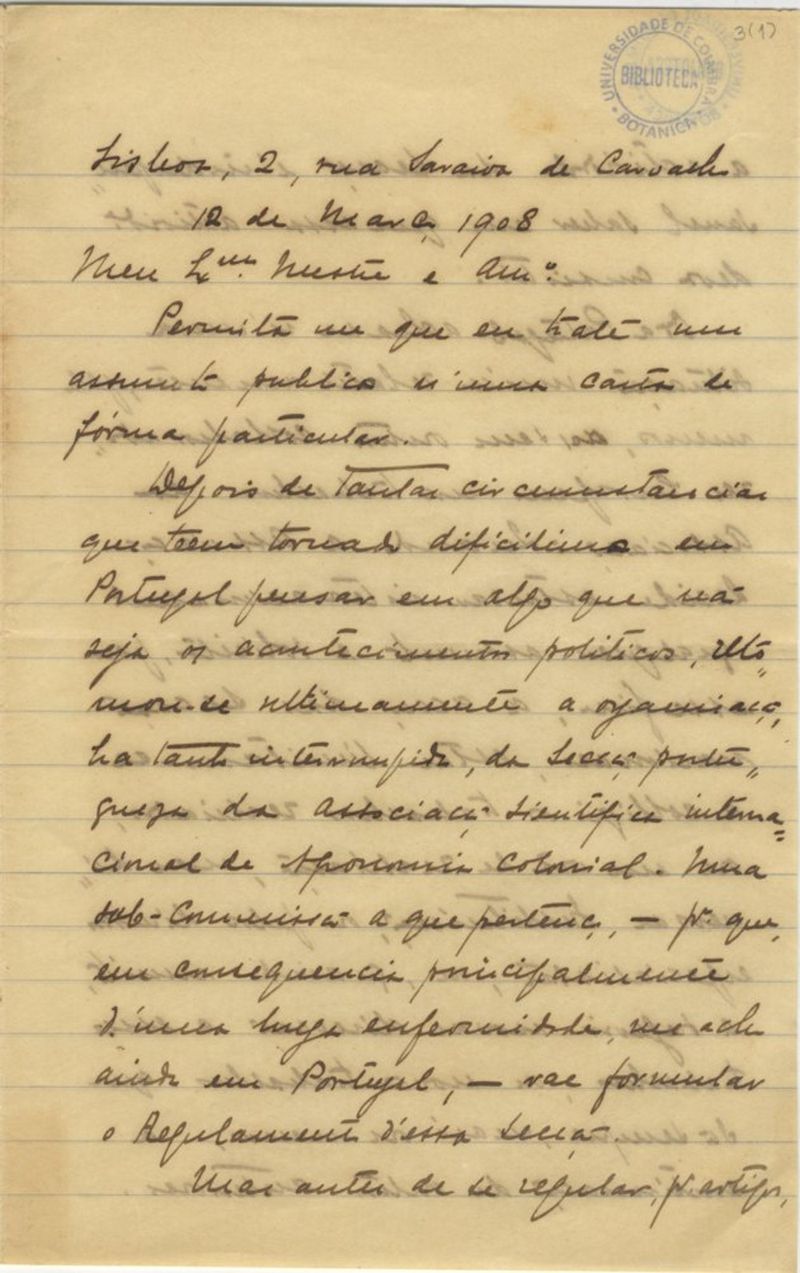 3(1)
UNIVERSIDADE DE COIMBRA
BIBLIOTECA
BOTANICA
Lisboa, 2, rua Saraiva de Carvalho
12 de Março 1908
Meu Exmo. Mestre e Amo.
Permita me que eu trate um
assunto publico n'uma carta de
fórma particular.
Depois de tantas circumstancias
que teem tornado dificilimo em
Portugal pensar em algo que não
seja os acontecimentos politicos, reto=
mou-se ultimamente a organisação,
ha tanto interrompida, da Secção portu=
gueza da Associação Scientifica interna=
cional de Agronomia colonial. Uma
sub-Commissão a que pertenço, — pr. que,
em consequencia principalmente
d'uma longa enfermidade, me acho
ainda em Portugal, — vae formular
o Regulamento d'essa Secção.
Mas antes de se regular, pr. artigos,